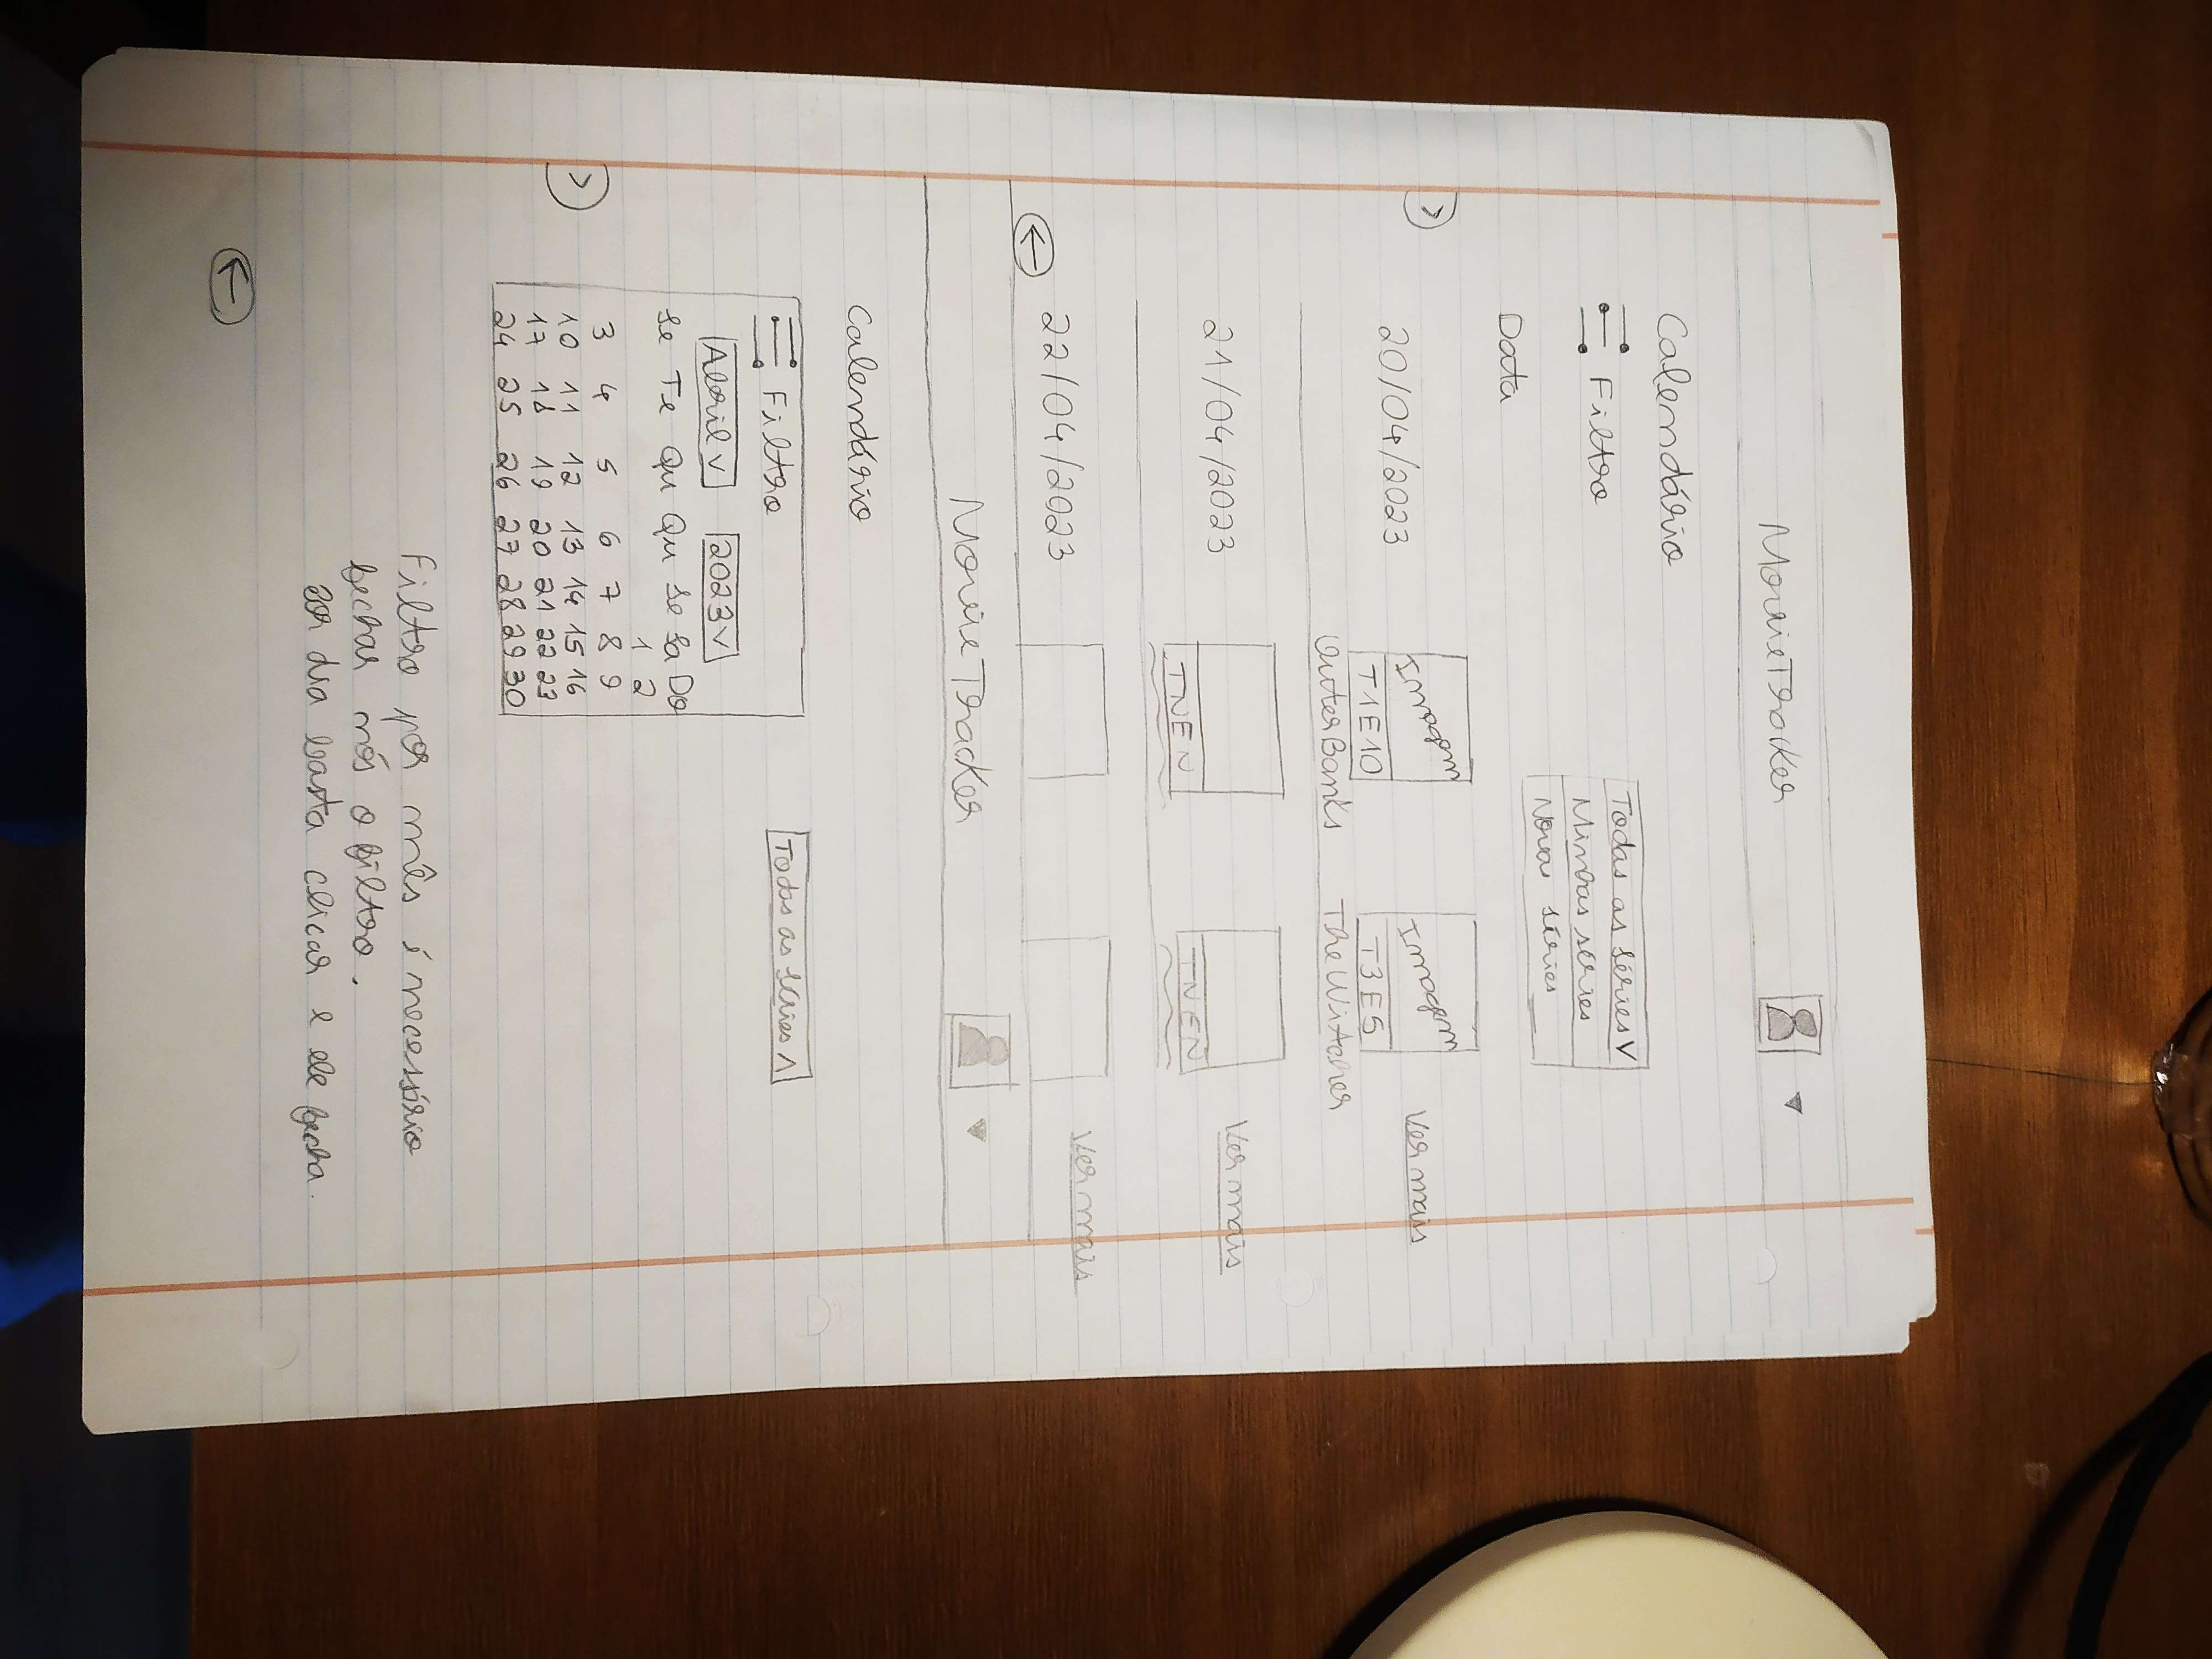 MovieTracker
Calendário
Filtro
Todas as séries V
Minhas séries
Novas séries
Data
20/04/2023
Imagem
T1E10
Outer Banks
Imagem
T3E5
The Witcher
Ver mais
21/04/2023
TNEN
TNEN
Ver mais
22/04/2023
Ver mais
MovieTracker
Calendário
Filtro
Todas as séries Λ
Abril V 2023 V
Se Te Qu Qu Se Sa Do
1 2
3 4 5 6 7 8 9
10 11 12 13 14 15 16
17 18 19 20 21 22 23
24 25 26 27 28 29 30
Filtro por mês é necessário
fechar nós o filtro.
Por dia basta clicar e ele fecha.